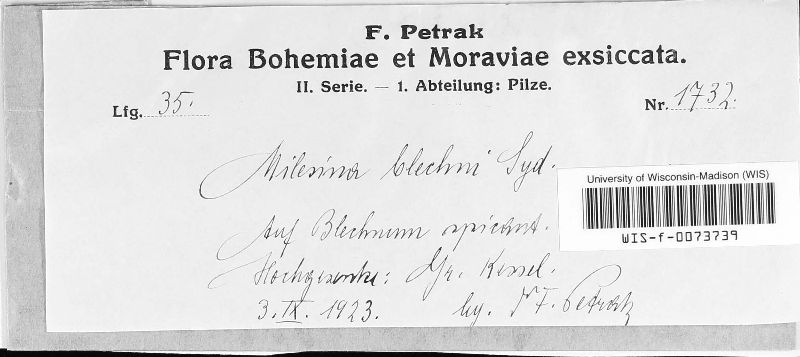 F. Petrak
Flora Bohemiae et Moraviae exsiccata.
II. Serie. — 1. Abteilung: Pilze.
Lfg. 35.
Nr. 1732.
Milesina blechni Syd.
University of Wisconsin-Madison (WIS)
WIS-f-0073739
Auf Blechnum spicant.
Hochgesenke: Gr. Kessel.
3. IX. 1923. lg. Dr F. Petrak